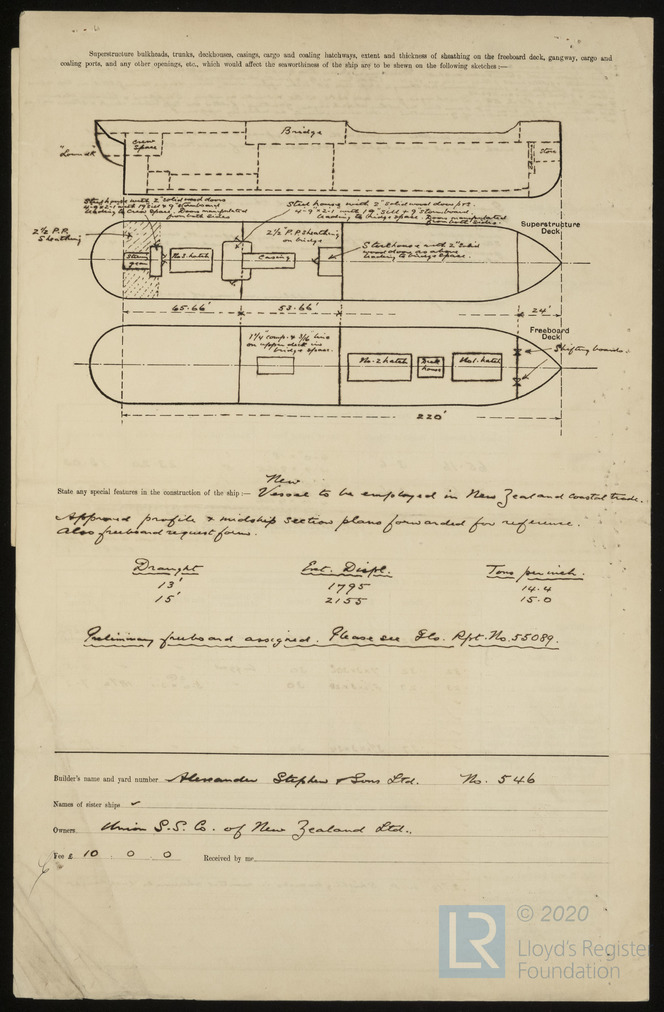 Superstructure bulkheads, trunks, deckhouses, casings, cargo and coaling hatchways, extent and thickness of sheathing on the freeboard deck, gangway, cargo and
coaling ports, and any other openings, etc., which would affect the seaworthiness of the ship are to be shewn on the following sketches :—
Bridge
Crew
Space
Store
Steel house with 2" solid wood doors
4-9 x 2-1 with 19" sill & 9" stormboard
leading to crew space. Doors manipulated
from both sides
Steel house with 2" solid wood doors
4-9 x 2-1 with 19" sill & 9" stormboard
leading to bridge space. Doors manipulated
from both sides.
2½ P.P.
Sheathing
2½" P.P. sheathing
on bridge
Steelhouse with 2" solid
wood doors as above
leading to bridge space.
Superstructure
Deck
Steering
gear
No.3. hatch
Casing
65-66'
53-66'
24'
Freeboard
Deck
1¼" comp. &
on upper deck in
bridge space.
No-2 hatch
Deck
house
No.1. hatch
Shifting boards.
220'
State any special features in the construction of the ship :—
New
Vessel to be employed in New Zealand coastal trade.
Approved profile & midship section plans forwarded for reference.
Also freeboard request form.
Draught Ext. Displ. Tons per inch.
13' 1795 14.4
15' 2155 15.0
Preliminary freeboard assigned. Please see Gls. Rpt. No. 55089.
Builder's name and yard number Alexander Stephen & Sons Ltd. No. 546
Names of sister ships
Owners Union S.S. Co. of New Zealand Ltd.
Fee £ 10 . 0 . 0 Received by me
LR
© 2020
Lloyd's Register
Foundation